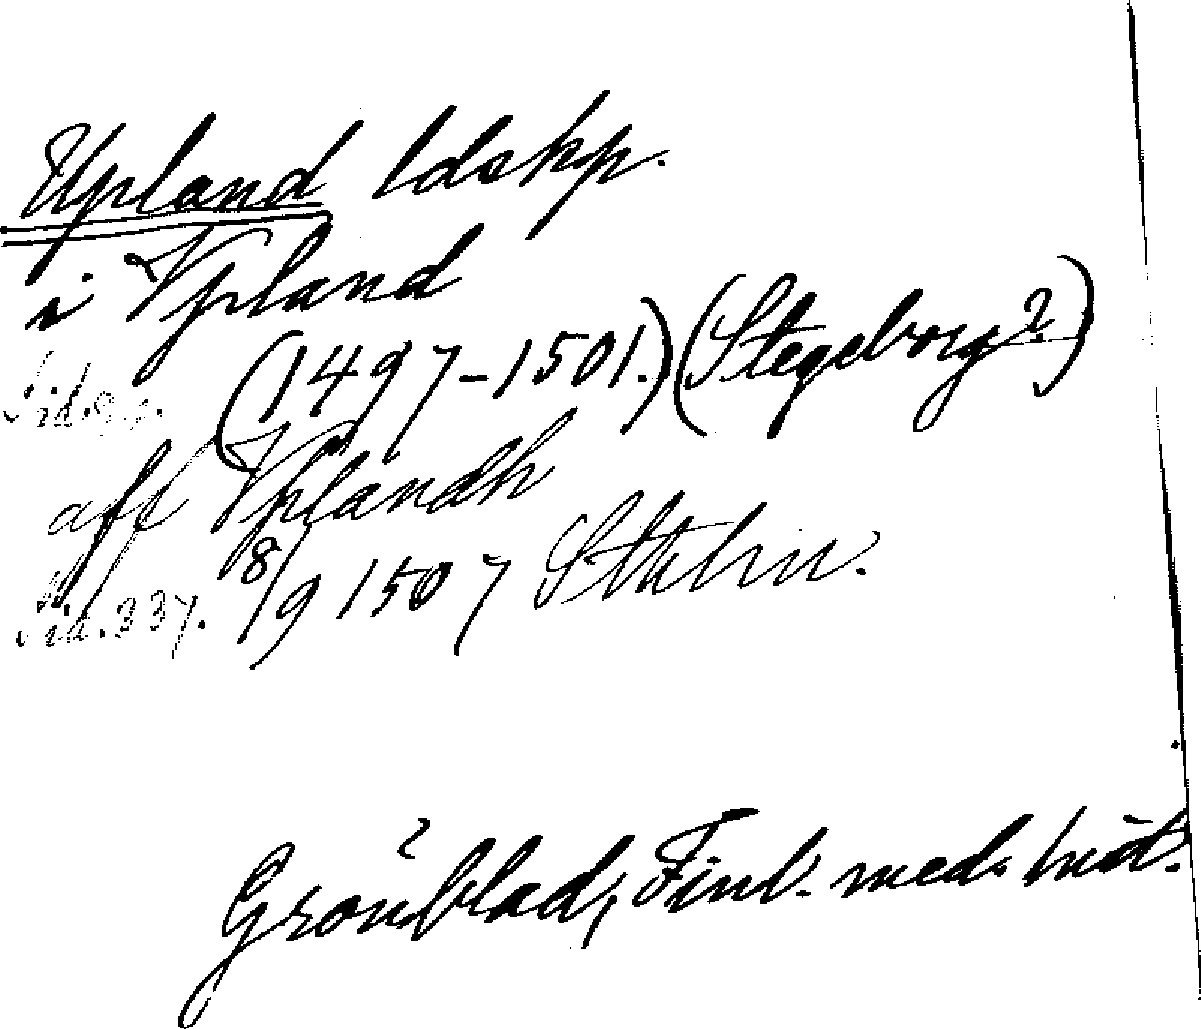 Upland ldskp.
i Vpland
(1497-1501.) (Stegeborg?)
Sid.
aff Vplandh
Sid. 337. 8/9 1507 Sthlm.
Grönblad, Finl. med. hist.